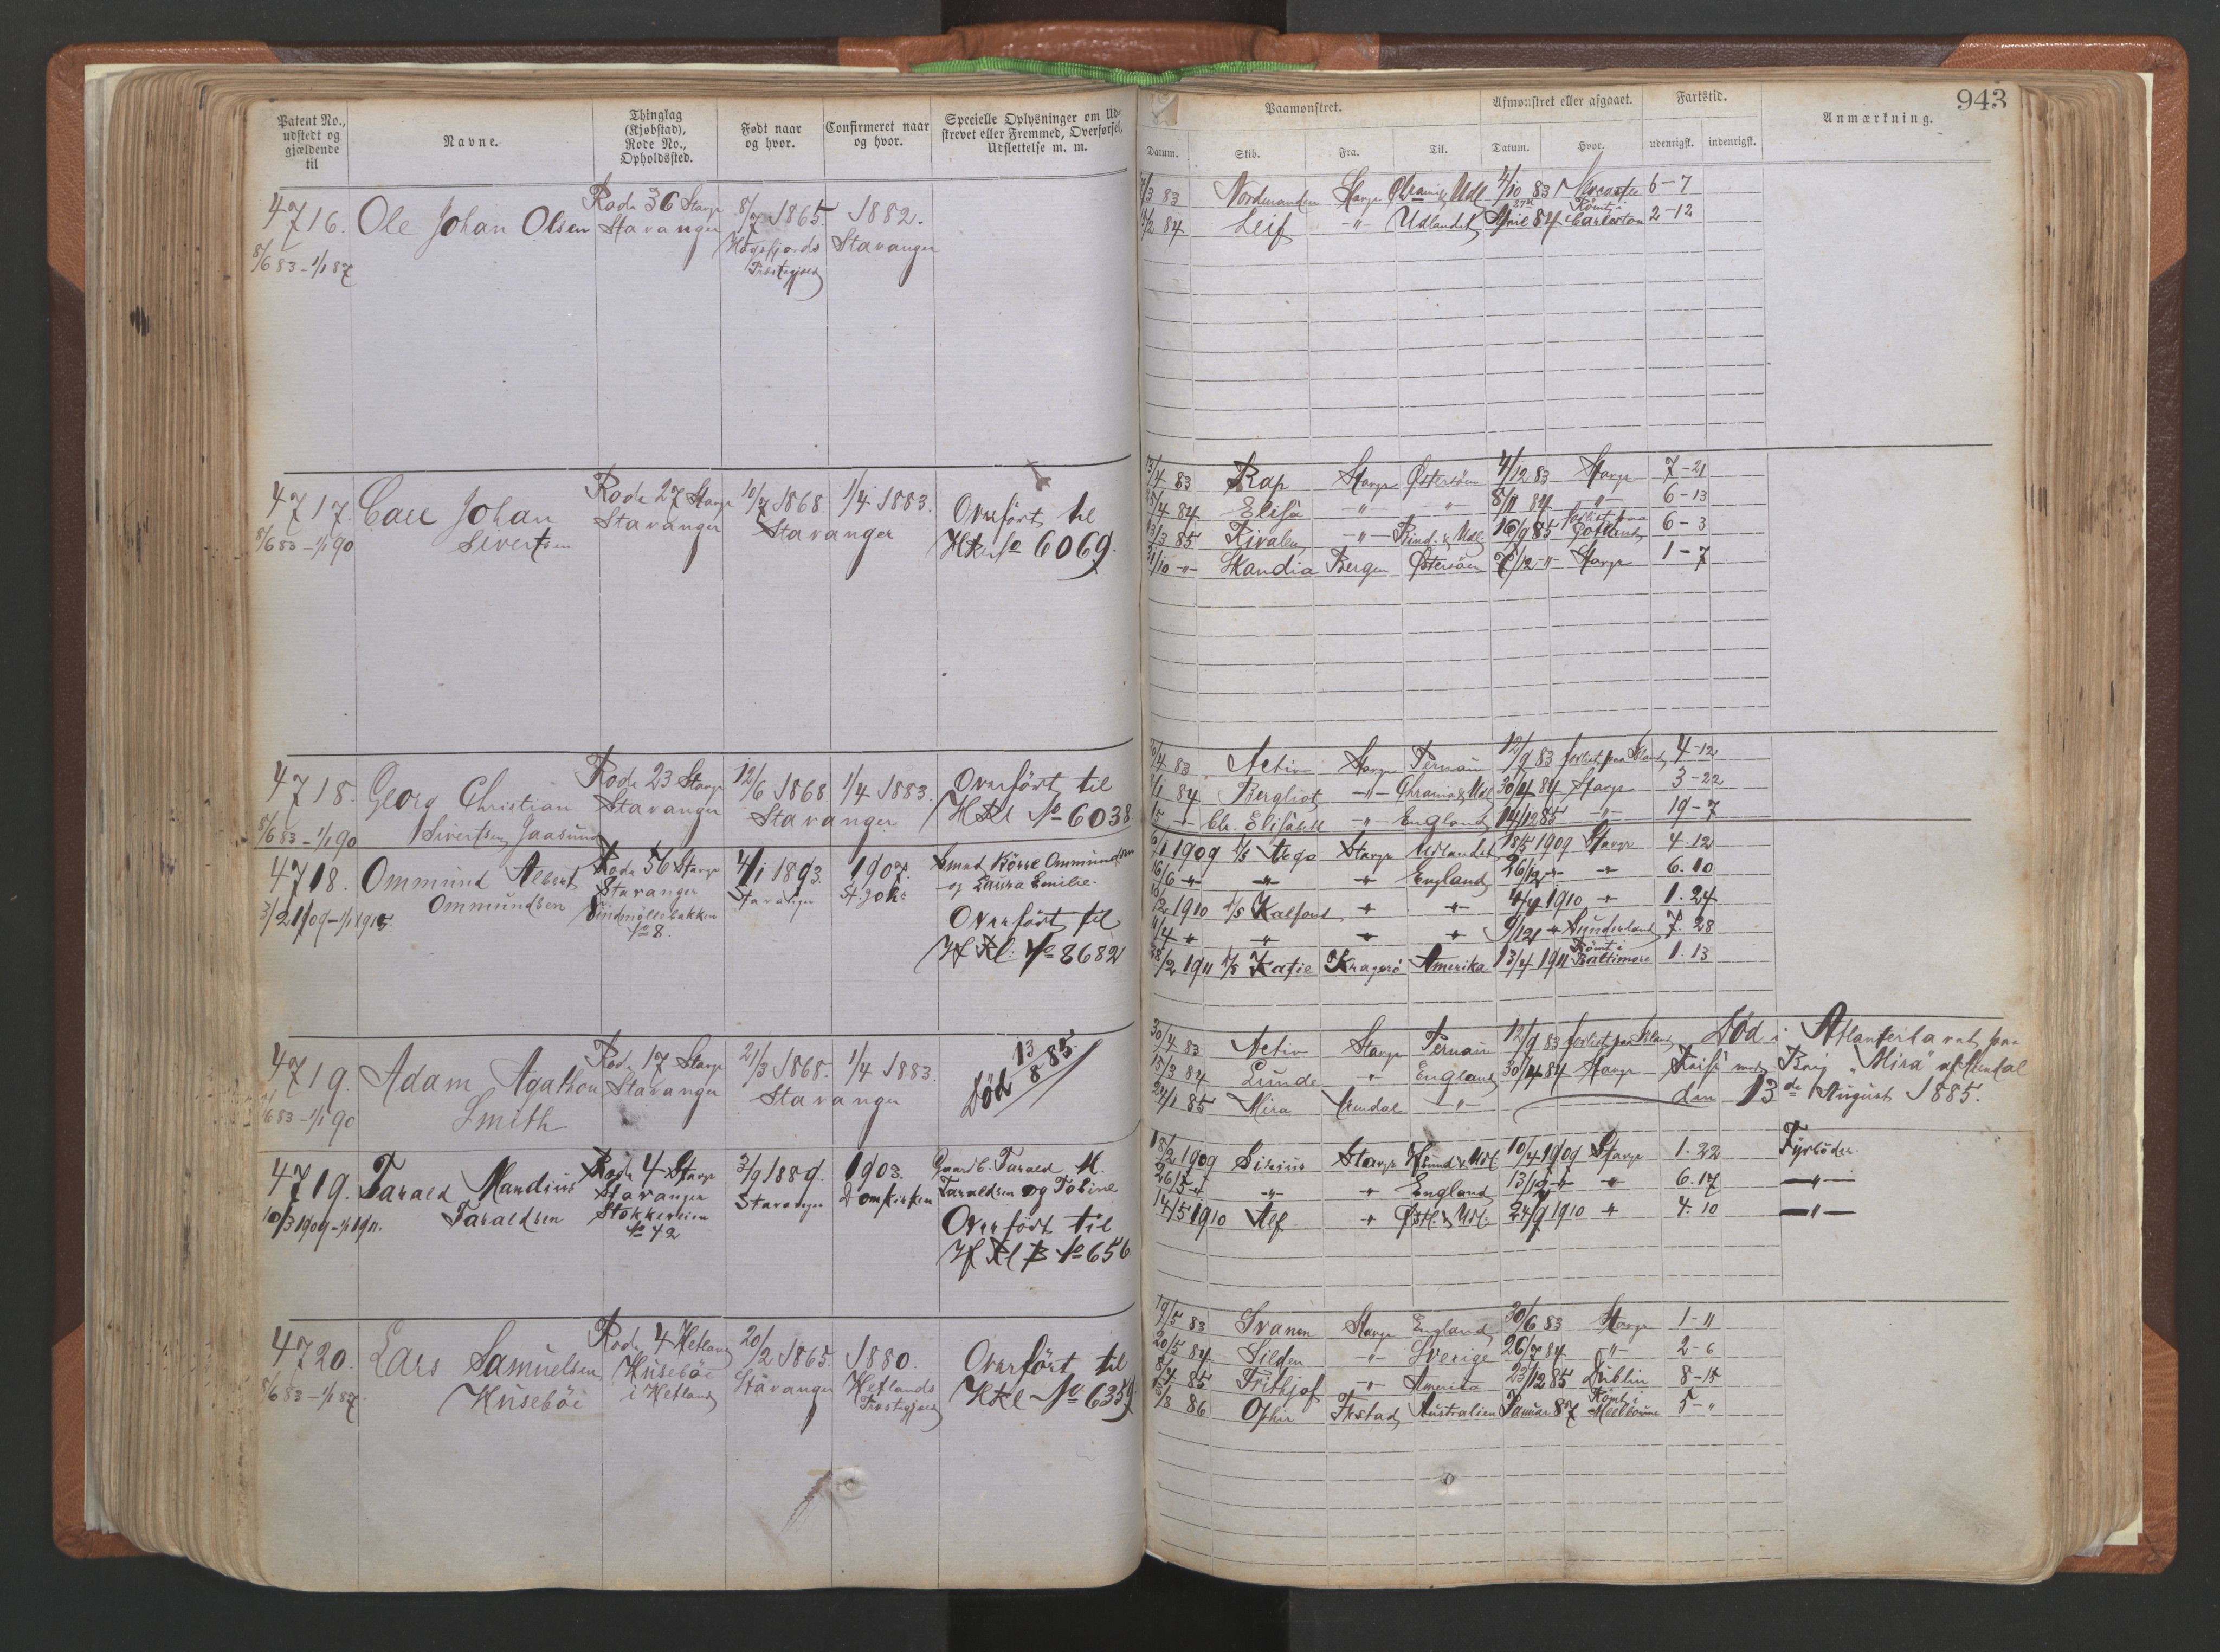 943
Patent No., udstedt og gjældende til
Navne.
Thinglag (Kjøbstad), Rode No., Opholdssted.
Født naar og hvor.
Confirmeret naar og hvor.
Specielle Oplysninger om Udskrevet eller Fremmed, Overførsel, Udslettelse m. m.
Paamønstret.
Afmønstret eller afgaaet.
Fartstid.
Anmærkning.
Datum. Skib. Fra. Til. Datum. Hvor. udenrigsk. indenrigsk.
4716. Ole Johan Olsen Rode 36 Stavgr 8/7 1865. 1882.
Stavanger Høgsfjords Stavanger
8/6 83 - 1/1 87 Præstegjeld
7/3 83 Nordmanden Stavgr Chrania & Udl 4/10 83 Newcastle 6-7
84 Leif -"- Udlandet 27de April 84 Rømt i Carleston 2-12
4717. Carl Johan Rode 27 Stavgr 10/7 1868. 1/4 1883. Overført til
Sivertsen Stavanger Stavanger HRl No 6069.
8/6 83 - 1/1 90
/4 83 Rap Stavgr Østersøen 4/12 83 Stavgr 7-21
/4 84 Elisa -"- " 8/11 84 -"- 6-13
13/3 85 Rivalen -"- & Udl. 16/9 85 forlist paa Gotland 6-3
/10 -"- Skandia Bergen Østersøen 7/12 -"- Stavgr 1-7
4718. Georg Christian Rode 23 Stavgr 12/6 1868 1/4 1883. Overført til
Sivertsen Jaasund Stavanger Stavanger HRl No 6038
8/6 83 - 1/1 90
30/4 83 Activ Stavgr Pernau 12/9 83 forlist paa Øland 4-12
84 Bergliot -"- Chrania & Udl 30/4 84 Stavgr 3-22
Chr. Elisabeth -"- England 14/12 85 -"- 19-7
4718. Ommund Albert Rode 56 Stavgr 4/1 1893. 1907. Smed Børre Ommundsen
Ommundsen Stavanger Stavanger St. Johs og Laura Emilie.
3/2 1909 - 1/1 1915 Vindmøllebakken No 8. Overført til
Hf Rl: No 8682
1909 D/S Vego Stavgr Udlandet 18/5 1909 Stavgr 4.12
16/6 -"- -"- " England 26/12 -"- -"- 6.10
/2 1910 D/S Kalfond " " 4/4 1910 " 1.24
/4 " -"- " " 9/12 " Sunderland 7.28
28/2 1911 D/S Katie Kragerø Amerika 13/4 1911 Rømt i Baltimore 1.13
4719. Adam Agathon Rode 17 Stavgr 21/3 1868. 1/4 1883. Død 13/8 85.
Smith Stavanger Stavanger
/6 83 - 1/1 90
30/4 83 Activ Stavgr Pernau 12/9 83 forlist paa Øland Død i Atlanterhavet paa
15/3 84 Lunde " England 30/4 84 Stavgr Reise med Brig "Mira" af Arendal
24/1 85 Mira Arendal -"- den 13de August 1885.
4719. Tarald Mandius Rode 4 Stavgr 3/9 1889. 1903. Gaardb. Tarald M.
Taraldsen Stavanger Stavanger Domkirken Taraldsen og Tobine
10/3 1909 - 1/1 1911. Stokkeveien No 42 Overført til
Hf Rl B No 656
18/2 1909 Sirius Stavgr Hsund & Udl. 10/4 1909 Stavgr 1.22 Fyrbøder
26/5 " -"- " England 13/12 " " 6.17 -"-
14/5 1910 Alf " Østl. & Udl. 24/9 1910 " 4.10 -"-
4720. Lars Samuelsen Rode 4 Hetland 20/2 1865. 1880. Overført til
Husebøe Husebøe i Hetland Stavanger Hetlands Præstegjeld HRl No 6359
8/6 83 - 1/1 87
19/5 83 Svanen Stavgr England 30/6 83 Stavgr 1-11
20/5 84 Silden -"- Sverige 26/7 84 -"- 2-6
8/4 85 Frithjof -"- Amerika 23/12 85 Dublin 8-15
/8 86 Ophir Fkstad Australien Januar 87 Rømt i Melbourne 5-"